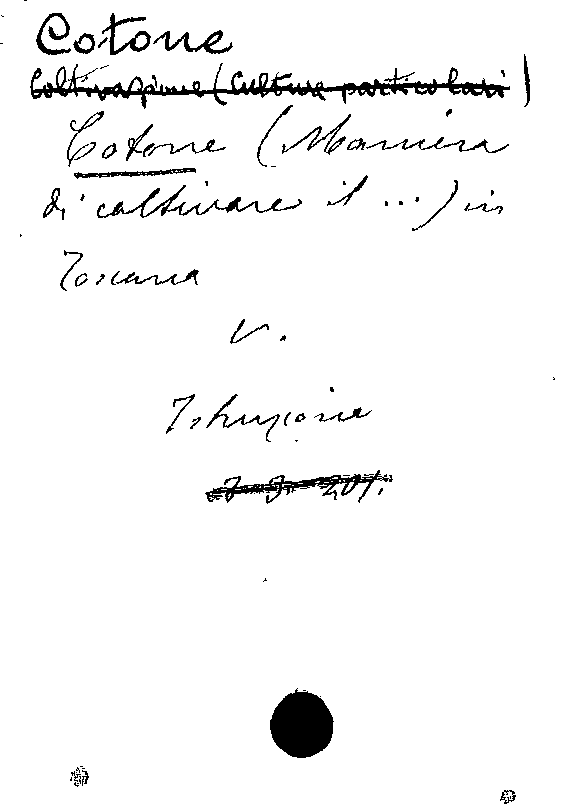 Cotone
Coltivazione (Culture particolari)
Cotone (Maniera
di coltivare il ...) in
Toscana
V.
Istruzione